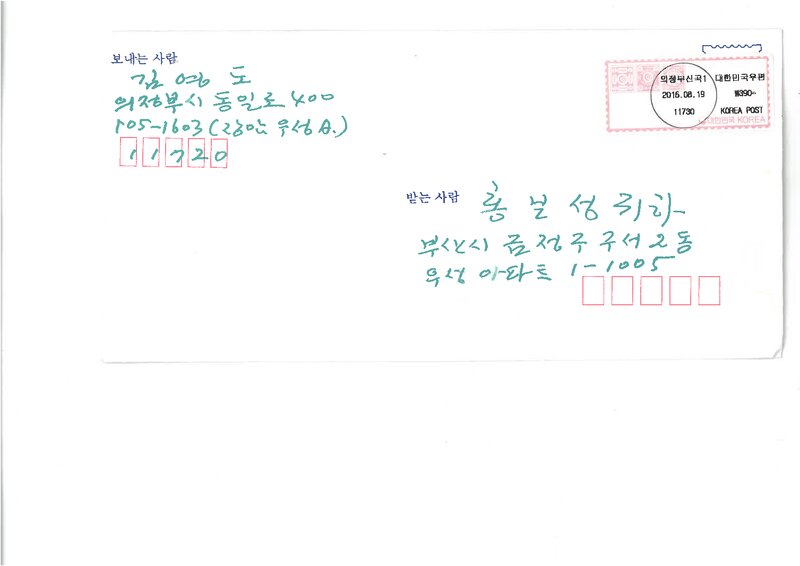 보내는 사람
김 영 도
의정부시 동일로 400
105-1603 (장암 우성 A.)
11720
의정부신곡1 대한민국우편
2016.08.19 ₩390
11730 KOREA POST
대한민국 KOREA
받는 사람 홍 보 성 귀하
부산시 금정구 구서2동
우성 아파트 1-1005